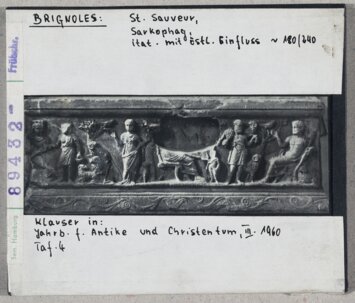 BRIGNOLES: St. Sauveur,
Sarkophag,
ital. mit östl. Einfluss ~ 180/240
Frühchr.
89432
Sem. Hamburg
Klauser in:
Jahrb. f. Antike und Christentum, III. 1960
Taf. 4